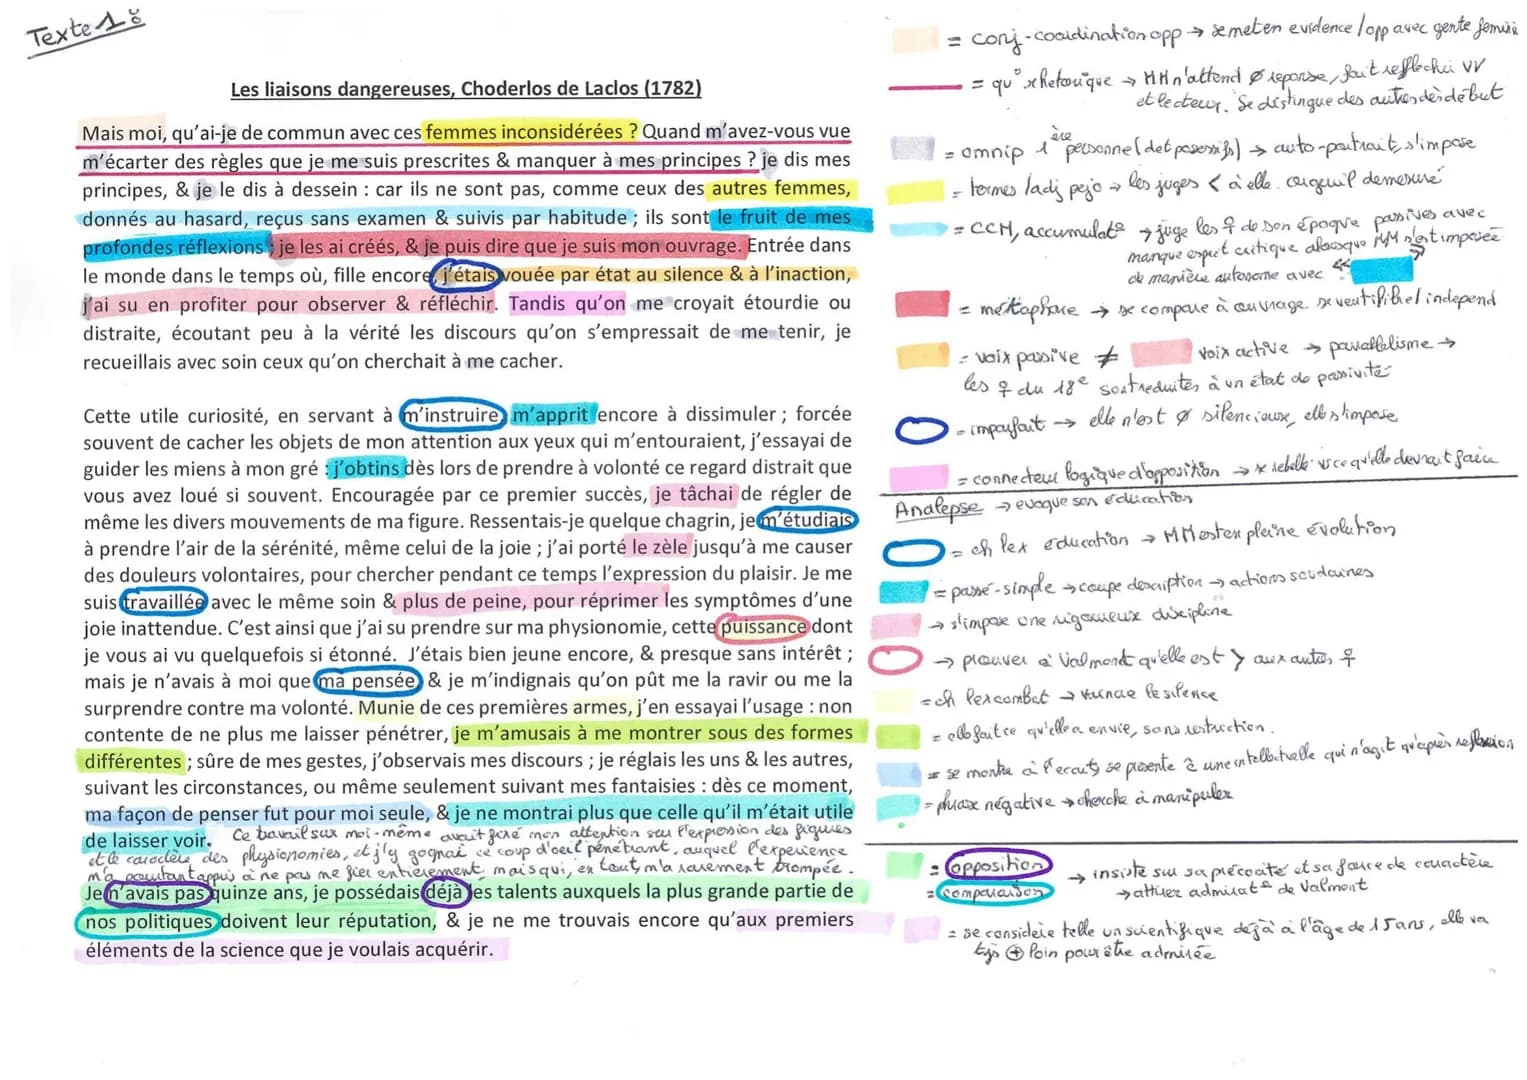 Texte 1 :
Les liaisons dangereuses, Choderlos de Laclos (1782)
Mais moi, qu'ai-je de commun avec ces femmes inconsidérées ? Quand m'avez-vous vue
m'écarter des règles que je me suis prescrites & manquer à mes principes ? je dis mes
principes, & je le dis à dessein : car ils ne sont pas, comme ceux des autres femmes,
donnés au hasard, reçus sans examen & suivis par habitude ; ils sont le fruit de mes
profondes réflexions ; je les ai créés, & je puis dire que je suis mon ouvrage. Entrée dans
le monde dans le temps où, fille encore, j'étais vouée par état au silence & à l'inaction,
j'ai su en profiter pour observer & réfléchir. Tandis qu'on me croyait étourdie ou
distraite, écoutant peu à la vérité les discours qu'on s'empressait de me tenir, je
recueillais avec soin ceux qu'on cherchait à me cacher.
Cette utile curiosité, en servant à m'instruire, m'apprit encore à dissimuler ; forcée
souvent de cacher les objets de mon attention aux yeux qui m'entouraient, j'essayai de
guider les miens à mon gré : j'obtins dès lors de prendre à volonté ce regard distrait que
vous avez loué si souvent. Encouragée par ce premier succès, je tâchai de régler de
même les divers mouvements de ma figure. Ressentais-je quelque chagrin, je m'étudiais
à prendre l'air de la sérénité, même celui de la joie ; j'ai porté le zèle jusqu'à me causer
des douleurs volontaires, pour chercher pendant ce temps l'expression du plaisir. Je me
suis travaillée avec le même soin & plus de peine, pour réprimer les symptômes d'une
joie inattendue. C'est ainsi que j'ai su prendre sur ma physionomie, cette puissance dont
je vous ai vu quelquefois si étonné. J'étais bien jeune encore, & presque sans intérêt ;
mais je n'avais à moi que ma pensée, & je m'indignais qu'on pût me la ravir ou me la
surprendre contre ma volonté. Munie de ces premières armes, j'en essayai l'usage : non
contente de ne plus me laisser pénétrer, je m'amusais à me montrer sous des formes
différentes ; sûre de mes gestes, j'observais mes discours ; je réglais les uns & les autres,
suivant les circonstances, ou même seulement suivant mes fantaisies : dès ce moment,
ma façon de penser fut pour moi seule, & je ne montrai plus que celle qu'il m'était utile
de laisser voir. Ce travail sur moi-même avait fixé mon attention sur l'expression des figures
et le caractère des physionomies, et j'y gagnai ce coup d'oeil pénétrant, auquel l'expérience
m'a pourtant appris à ne pas me fier entièrement, mais qui, en tout, m'a rarement trompée.
Je n'avais pas quinze ans, je possédais déjà les talents auxquels la plus grande partie de
nos politiques doivent leur réputation, & je ne me trouvais encore qu'aux premiers
éléments de la science que je voulais acquérir.
= conj-coordination opp → se met en evidence / opp avec gente feminin
= qu° rhetorique → MM n'attend Ø reponse, fait reflechir VV
et lecteur. Se distingue des autres dès début
= omnip 1ère personne (det possessifs) → auto-portrait, s'impose
= termes / adj pejo → les juges < à elle. orgueil demesuré
= CCM, accumulat° → juge les ♀ de son époque passives avec
manque esprit critique alors que MM s'est imposée
de manière autonome avec "
= métaphore → se compare à ouvrage se veut libre / independ
= voix passive ≠ voix active → parallelisme →
les ♀ du 18e sont reduites à un état de passivité
= imparfait → elle n'est Ø silencieuse, elle s'impose
= connecteur logique d'opposition → rebelle vs ce qu'elle devrait faire
Analepse → evoque son éducation
= ch lex éducation → MM est en pleine évolution
= passé-simple → coupe description → actions soudaines
→ s'impose une rigoureuse discipline
→ prouver à Valmont qu'elle est > aux autres ♀
= ch lex combat → vaincre le silence
= elle fait ce qu'elle a envie, sans restruction.
= se montre à l'ecart, se presente à une intellectuelle qui n'agit qu'après reflexion
= phrase négative → cherche à manipuler
= opposition
= comparaison
→ insiste sur sa précocité et sa force de caractère
→ attirer admirat° de Valmont
= se considère telle un scientifique déjà à l'âge de 15 ans, elle va
tjs ⊕ loin pour être admirée